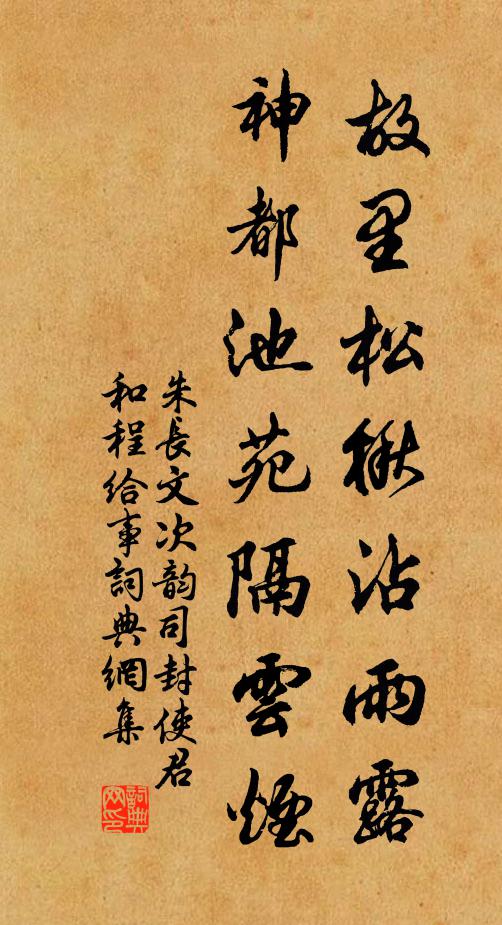 故里松楸沾雨露
神都池苑隔雲煙
朱長文次韵司封使君
和程給事詞典網集
詞典網印